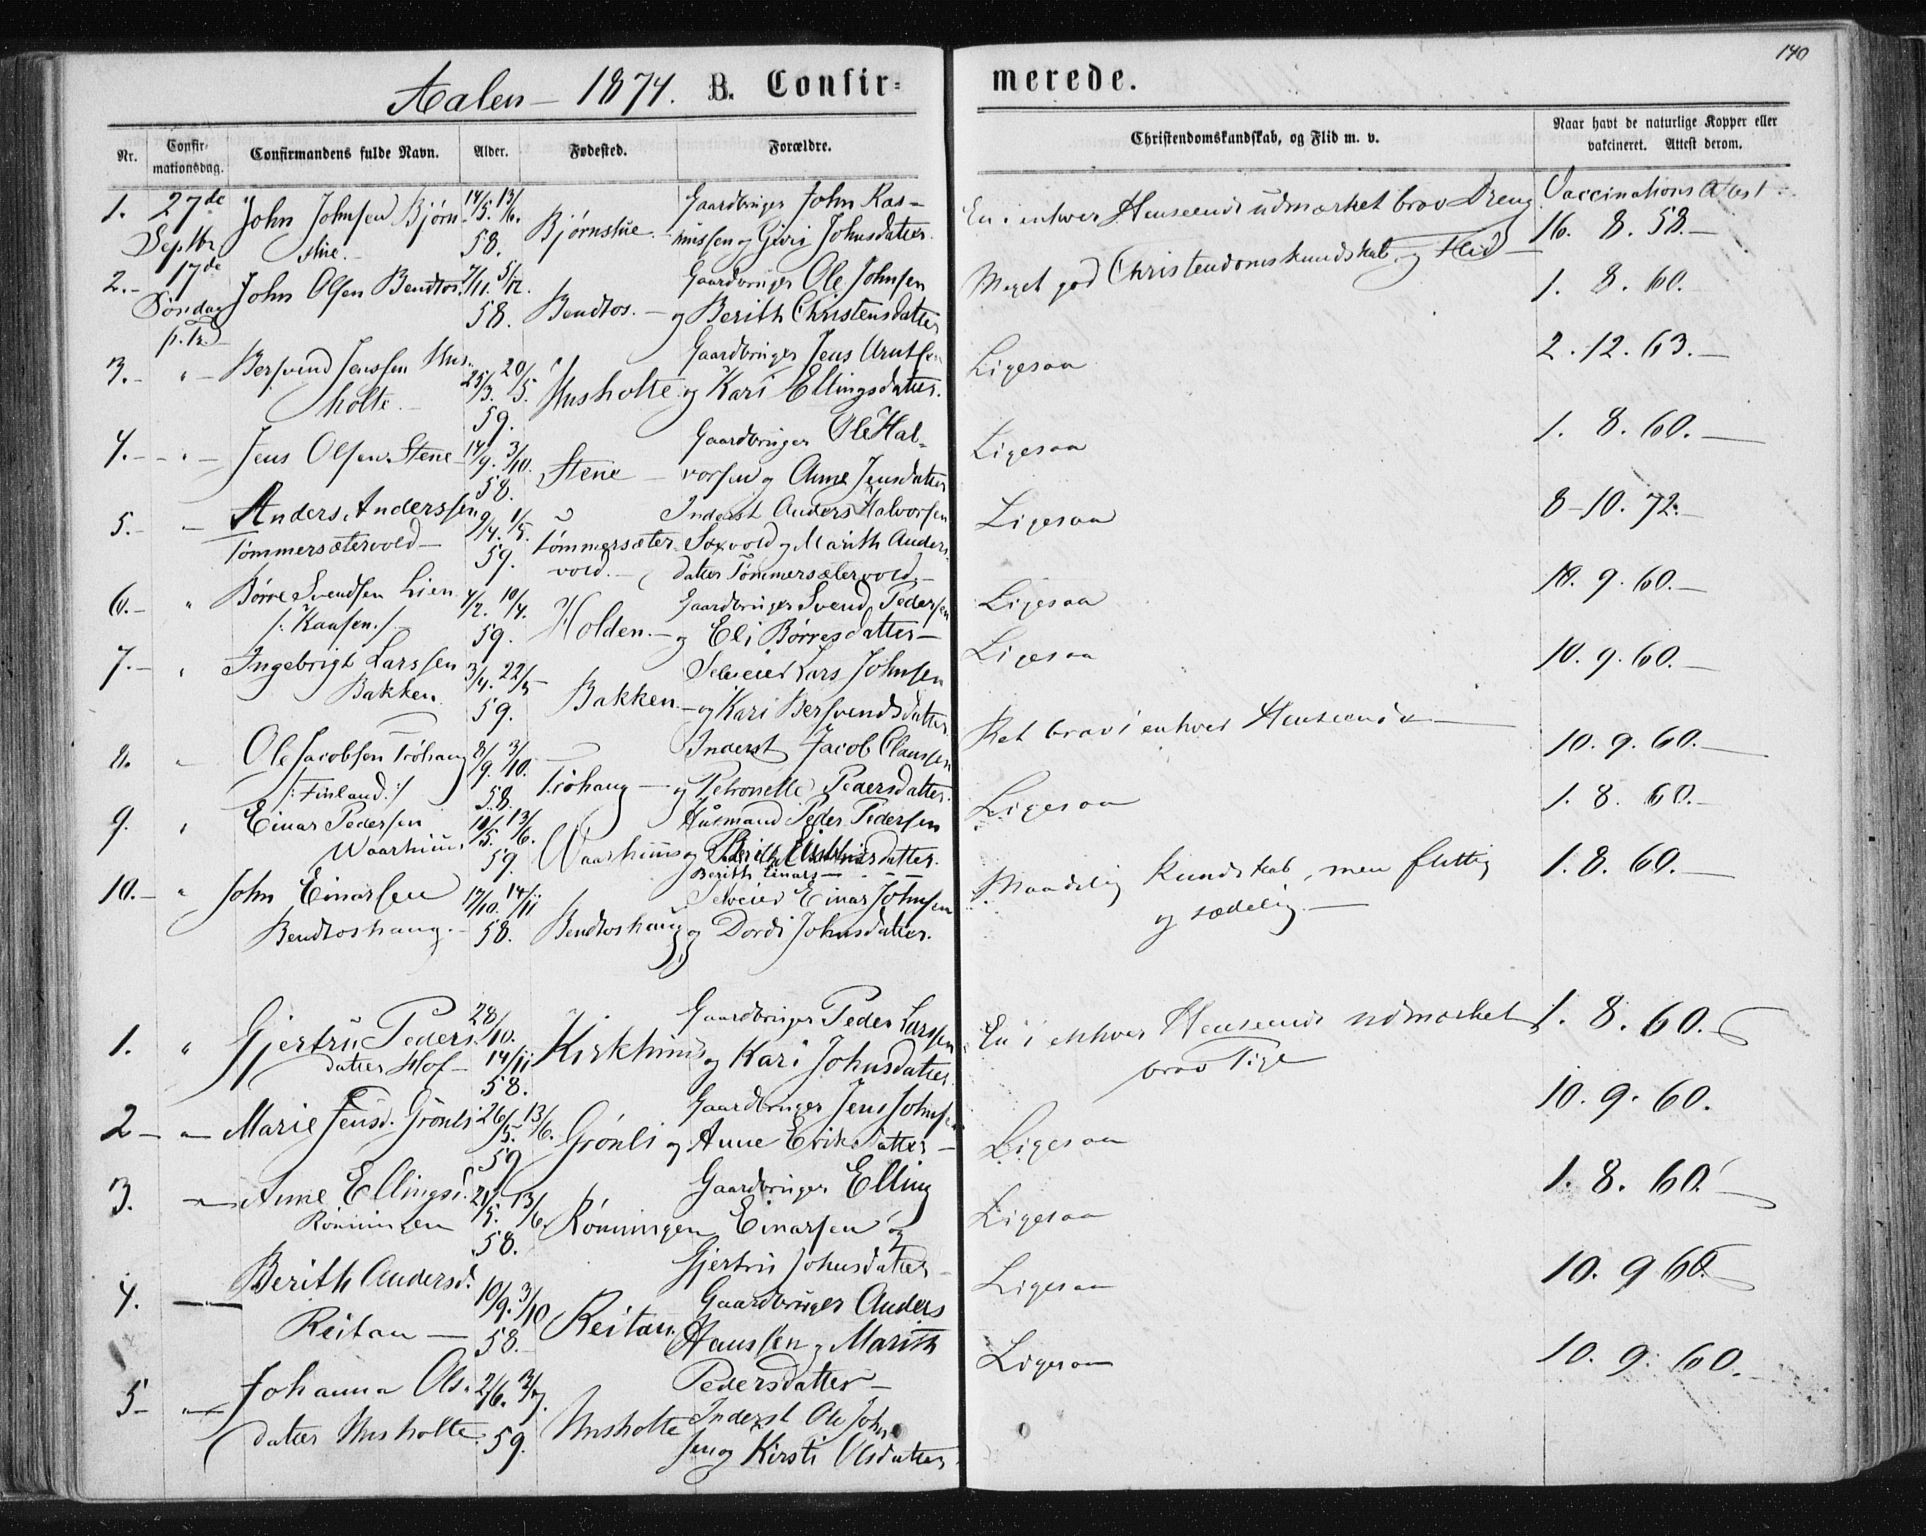 140
Aalen – 1874. B. Confir-
merede.
Nr.
Confir-
mationsdag.
Confirmandens fulde Navn.
Alder.
Fødested.
Forældre.
Christendomskundskab, og Flid m. v.
Naar havt de naturlige Kopper eller
vakcineret. Attest derom.
1. 27de John Johnsen Bjørn- 14/5. 13/6. Bjørnstue. Gaardbruger John Ras-
Septbr stue. 58. mussen og Guri Johnsdatter.
En i enhver Henseende udmærket brav Dreng
Vaccinations Attest
16. 8. 58.
2. 17de John Olsen Bendtos. 7/11. 5/12. Gaardbruger Ole Johnsen
Søndag 58. Bendtos. og Berith Christensdatter
p. Tr.
Meget god Christendomskundskab og Flid
1. 8. 60.
3. " Bersvend Jenssen Hus- 25/3. 20/5. Gaardbruger Jens Arntsen
holte. 59. Husholte og Kari Ellingsdatter.
Ligesaa
2. 12. 63.
4. " Jens Olsen Stene 14/9. 3/10. Stene Gaardbruger Ole Hal-
58. vorsen og Anne Jensdatter
Ligesaa
1. 8. 60.
5. Anders Anderssen 9/4. 1/5. Inderst Anders Halvorsen
Tømmersætervold 59. Tømmersæter- Saxvold og Marith Anders-
vold. datter Tømmersætervold.
Ligesaa
8-10. 72.
6. " Børre Svendsen Lien 4/2. 10/4. Gaardbruger Svend Pedersen
/: Kaasen :/ 59. Holden. og Eli Børresdatter
Ligesaa
10. 9. 60.
7. " Ingebrigt Larssen 3/4. 22/5 Selveier Lars Johnsen
Bakken 59. Bakken. og Kari Bersvendsdatter
Ligesaa
10. 9. 60.
8. Ole Jacobsen Trøhaug 8/9. 3/10. Inderst Jacob Clausen
/: Finland :/ 58. Trøhaug og Petronelle Pedersdatter.
Ret brav i enhver Henseende
10. 9. 60.
9. " Einar Pedersen 18/5. 13/6. Husmand Peder Pedersen
Waarhuus 59. Waarhuus og
Berith Einars
Ligesaa
1. 8. 60.
10. " John Einarsen 17/10. 14/11 Selveier Einar Johnsen
Bendtoshaug. 58. Bendtoshaug og Dordi Johnsdatter.
Maadelig Kundskab, men flittig
og sædelig.
1. 8. 60.
1. " Gjertru Peders- 28/10. Kirkhuus Gaardbruger Peder Larssen
datter Hof 14/11 og Kari Johnsdatter
58.
En i enhver Henseende udmærket
brav Pige
1. 8. 60.
2 Marie Jensd. Grønli 26/5. 13/6. Gaardbruger Jens Johnsen
59 Grønli og Anne Eriksdatter
Ligesaa
10. 9. 60.
3. Anne Ellingsd. 21/5. 13/6. Gaardbruger Elling
Rønningen 58. Rønningen Einarsen og
Gjertru Johnsdatter
Ligesaa
1. 8. 60.
4. Berith Andersd. 10/9. 3/10 Gaardbruger Anders
Reitan 58. Reitan. Hanssen og Marith
Pedersdatter
Ligesaa
10. 9 60.
5 Johanna Ols- 2/6. 3/7. Inderst Ole John-
datter Husholte 59. Husholte sen og Kirsti Olsdatter
Ligesaa
10. 9. 60.